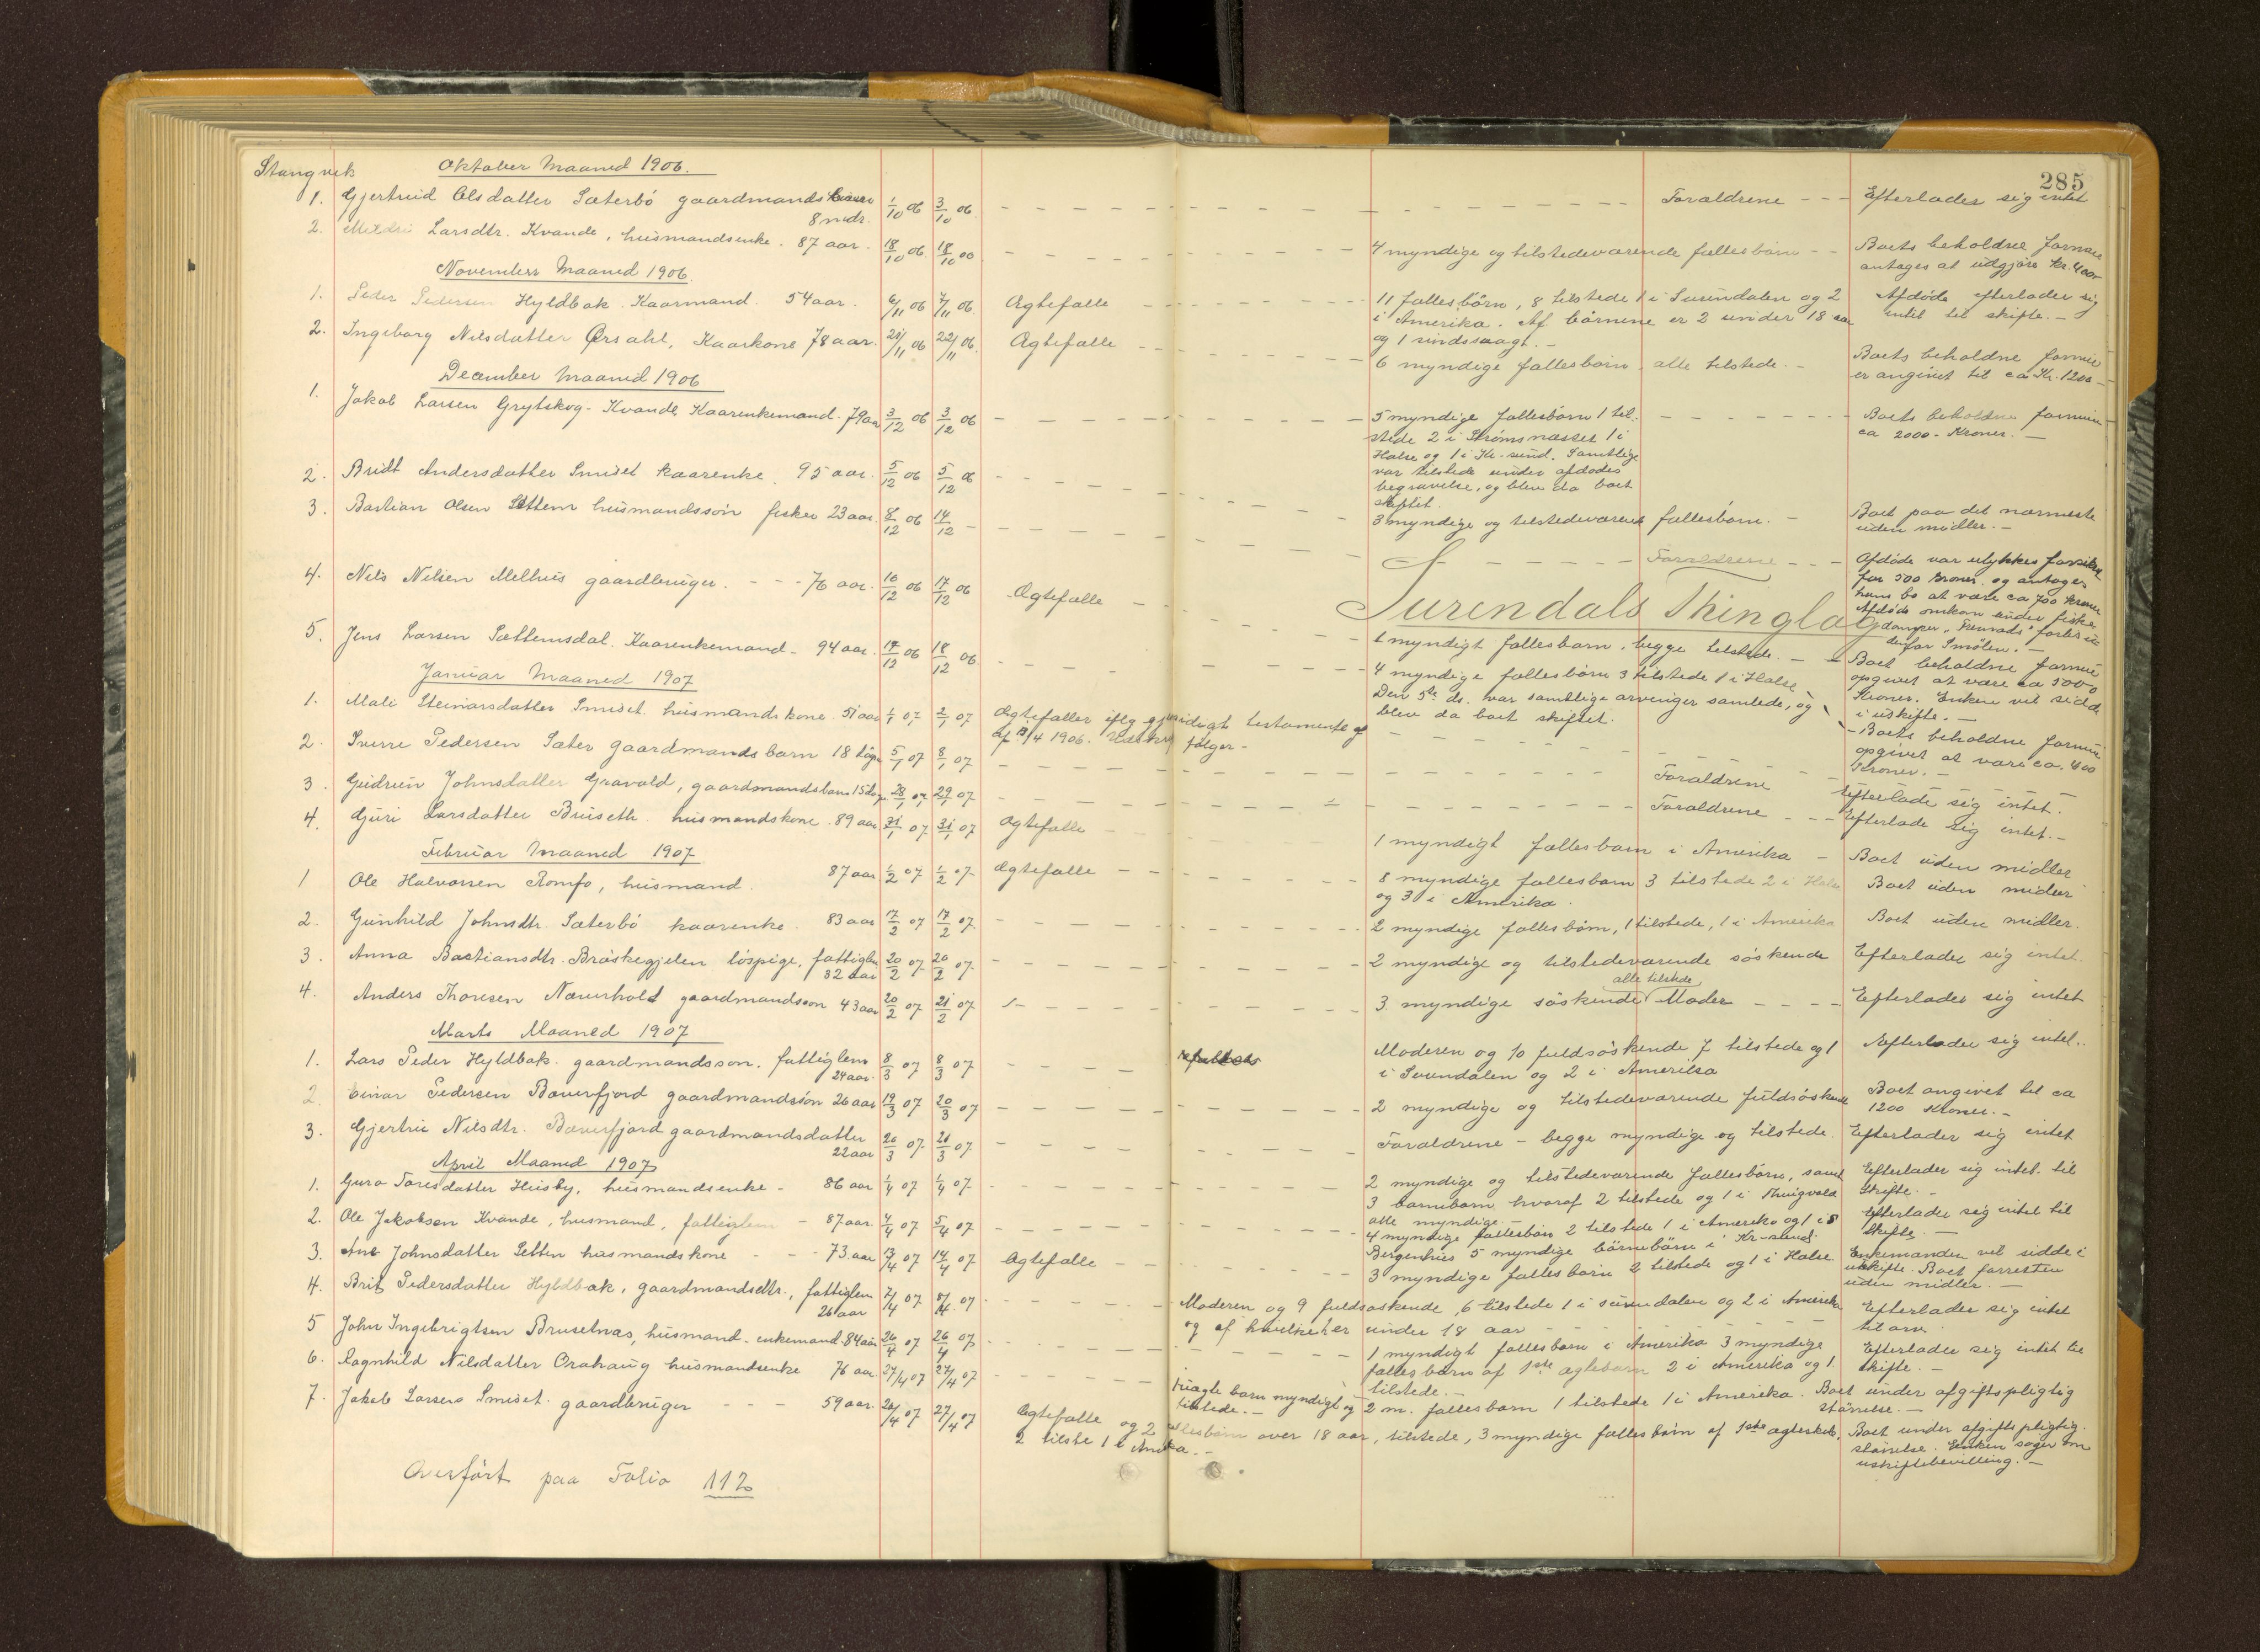 285
Stangvik Oktober Maaned 1906.
1. Gjertruid Olsdatter Sæterbö gaardmands 1/10 06 3/10 06. Forældrene Efterlader sig intet
8 mdr.
2. Larsdtr. Kvande, husmandsenke. 87 aar. 18/10 06. 18/10 4 myndige og tilstedeværende fællesbörn Boets beholdne formue
antages at udgjøre kr. 400
November Maaned 1906.
1. Peder Pedersen Hyldbak. Kaarmand. 54 aar. 6/11 06 7/11 06. Ægtefælle 11 fællesbörn, 8 tilstede 1 i Surendalen og 2 Afdøde efterlader sig
i Amerika. Af börnene er 2 under 18 aar intet til skifte.
og 1 sindssvagt.
2. Ingeborg Nilsdatter Ørsahl, Kaarkone 78 aar. 21/11 06 22/11 06. Ægtefælle 6 myndige fællesbörn alle tilstede. Boets beholdne formue
er angivet til ca Kr. 1200
December Maaned 1906
1. Jakob Larsen Grytskog-Kvande Kaarenkemand. 79 aar 3/12 06 3/12 06 5 myndige fællesbörn 1 til- Boets beholdne formue
stede 2 i Strømsnæsset 1 i ca 2000 Kroner.
Halse og 1 i Kr-sund. Samtlige
var tilstede under afdødes
begravelse, og blev da boet
skiftet.
2. Bridt Andersdatter Smiset kaarenke. 95 aar. 5/12 06 5/12 06 3 myndige og tilstedeværende fællesbörn. Boet paa det nærmeste
uden midler.
3. Bastian Olsen Settem husmandssön fisker 23 aar. 8/12 06 14/12 Forældrene Afdøde var ulykkesforsikret
for 500 Kroner og antages
hans bo at være ca 700 kroner
Afdøde omkom under fiske
damper forlis
for Smølen.
4. Nils Nilsen Melhus gaardbruger. 76 aar. 16/12 06 17/12 06 Ægtefælle
Surendals Thinglag
1 myndigt fællesbarn, begge tilstede. Boet beholdne formue
opgivet at være ca 5000
Kroner. Enken vil sidde
i uskifte.
5. Jens Larsen Sættemsdal. Kaarenkemand 94 aar. 17/12 06 18/12 06. 4 myndige fællesbörn 3 tilstede 1 i Halse
Den 5te ds. var samtlige arvinger samlede, og
blev da boet skiftet. Boets beholdne formue
opgivet at være ca. 400
Kroner.
Januar Maaned 1907
1. Mali Steinarsdatter Smiset husmandskone. 51 aar 1/1 07 2/1 07 Ægtefæller iflg gjensidigt testamente af
1906. følger
2. Sverre Pedersen Sæter gaardmandsbarn 18 dage 5/1 07 8/1 07 Forældrene Efterlade sig intet.
3. Gudrun Johnsdatter Gravvold, gaardmandsbarn 15 dage 28/1 07 29/1 07 Forældrene Efterlade sig intet.
4. Guri Larsdatter Bruseth husmandskone. 89 aar 31/1 07 31/1 07 Ægtefælle 1 myndigt fællesbarn i Amerika Boet uden midler
Februar Maaned 1907
1 Ole Halvorsen Romfo, husmand. 87 aar 1/2 07 1/2 07. Ægtefælle 8 myndige fællesbarn 3 tilstede 2 i Halse Boet uden midler
og 3 i Amerika.
2. Gunhild Johnsdtr. Sæterbö kaarenke. 83 aar 17/2 07 17/2 07. 2 myndige fællesbörn, 1 tilstede, 1 i Amerika Boet uden midler.
3. Anna Bastiansdtr. Bröskegjelen löspige, fattiglem 20/2 07. 20/2 07. 2 myndige og tilstedeværende söskende Efterlader sig intet.
82 aar
4. Anders Thoresen Næverholt gaardmandssön 43 aar 20/2 07 21/2 07 alle tilstede
3. myndige söskende Moder Efterlader sig intet
Marts Maaned 1907
1. Lars Peder Hyldbak. gaardmandsson, fattiglem 8/3 07 8/3 07 Moderen og 10 fuldsöskende 7 tilstede og 1 Efterlader sig intet.
24 aar. i Surendalen og 2 i Amerika
2. Einar Pedersen Bøverfjord gaardmandssön 26 aar 19/3 07 20/3 07 2 myndige og tilstedeværende fuldsöskende Boet angivet til ca
1200 Kroner.
3. Gjertrud Nilsdtr. Bøverfjord gaardmandsdatter 20/3 07 21/3 07. Forældrene begge myndige og tilstede. Efterlader sig intet
22 aar
April Maaned 1907
1. Guro Toresdatter Husby, husmandsenke 86 aar 1/4 07 1/4 07. 2 myndige og tilstedeværende fællesbörn, samt Efterlader sig intet til
3 barnebarn hvoraf 2 tilstede og 1 i Thingvold skifte.
alle myndige.
2. Ole Jakobsen Kvande, husmand, fattiglem 87 aar. 4/4 07 5/4 07 4 myndige fællesbörn 2 tilstede 1 i Amerika og 1 i S Efterlader sig intet til
Bergenhus 5 myndige börnebörn i Kr-sund. skifte.
3. Ane Johnsdatter Setten husmandskone 73 aar 13/4 07 14/4 07. Ægtefælle 3 myndige fællesbörn 2 tilstede og 1 i Halse. Enkemanden vil sidde i
uskifte. Boet forresten
uden midler.
4. Brit Pedersdatter Hyldbak, gaardmandsdtr., fattiglem 7/4 07 8/4 07. Moderen og 9 fuldsøskende, 6 tilstede 1 i surendalen og 2 i Amerika Efterlader sig intet
26 aar og af hvilke her under 18 aar til arv.
5 John Ingebrigtsen Bruselnæs, husmand-enkemand 84 aar 26/4 07 26/4 07 1 myndigt fællesbarn i Amerika 3 myndige Efterlader sig intet til
fællesbörn af 1ste ægtebarn 2 i Amerika og 1 skifte.
tilstede.
6. Ragnhild Nilsdatter Orahaug husmandsenke 76 aar. 27/4 07 27/4 07 uægte barn myndigt og 2 m. fællesbarn 1 tilstede 1 i Amerika. Boet under afgiftspligtig
tilstede. størrelse.
7. Jakob Larsens Smiset. gaardbruger 59 aar. 26/4 07 27/4 07 Ægtefælle og 2 fællesbörn over 18 aar, tilstede, 3 myndige fællesbörn af 1ste ægteskab, Boet under afgiftspligtig.
2 tilste 1 i Amerika. størrelse. Enken søger om
uskiftebevilling.
Overført paa Folio 112